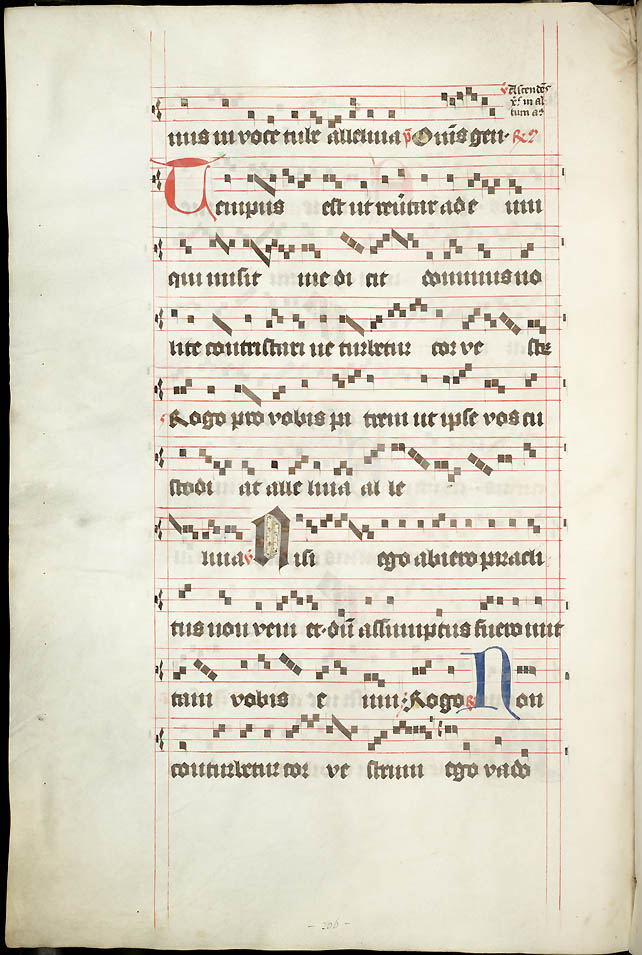 ℣ Ascendēs
xp̄c in al
tum a͞e
nus in voce tube alleluia p̄ Om̄s gen. ℟
Tempus est ut reūtar ad e um
qui misit me di cit dominus no
lite contristari ne turbetur cor ve strū
Rogo pro vobis pa trem ut ipse vos cu
stodi at alle luia al le
luia ℣ Nisi ego abiero paracli
tus non veni et. dū assumptus fuero mit
tam vobis e um. Rogo ℟ Non
conturbetur cor ve strum ego vado
306